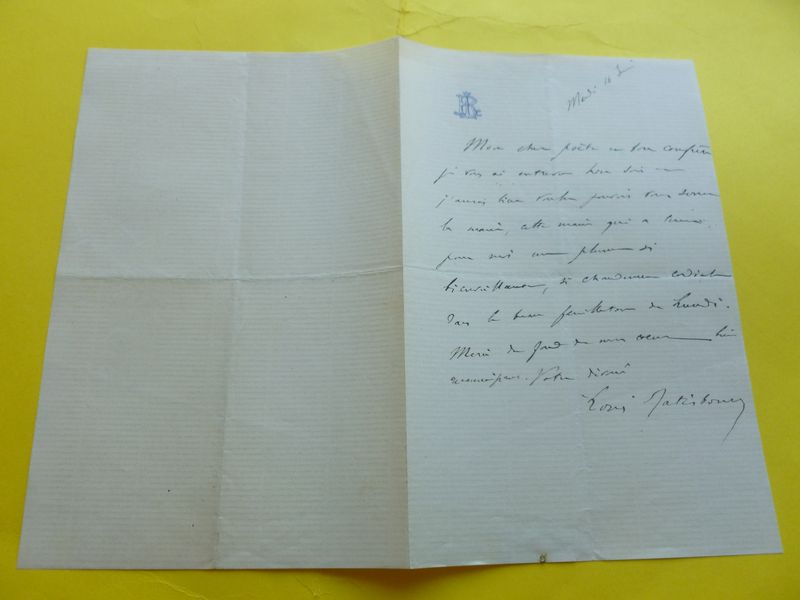 LR
Mardi 14 Juin
Mon cher poète et bon confrère
je vous ai entrevu hier soir
j'aurais bien voulu pouvoir vous donner
la main, cette main qui a tenu
pour moi une plume si
bienveillante, si chaudement cordiale
dans le beau feuilleton de Lundi.
Merci du fond de mon cœur bien
reconnaissant. Votre dévoué
Louis Ratisbonne